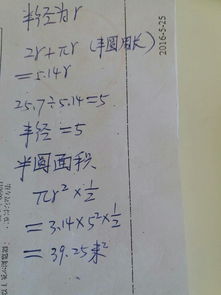 半径为r
2r+πr (半圆周长)
=5.14r
25.7÷5.14=5
半径=5
半圆面积
πr²×1/2
=3.14×5²×1/2
=39.25米²
2016-5-25